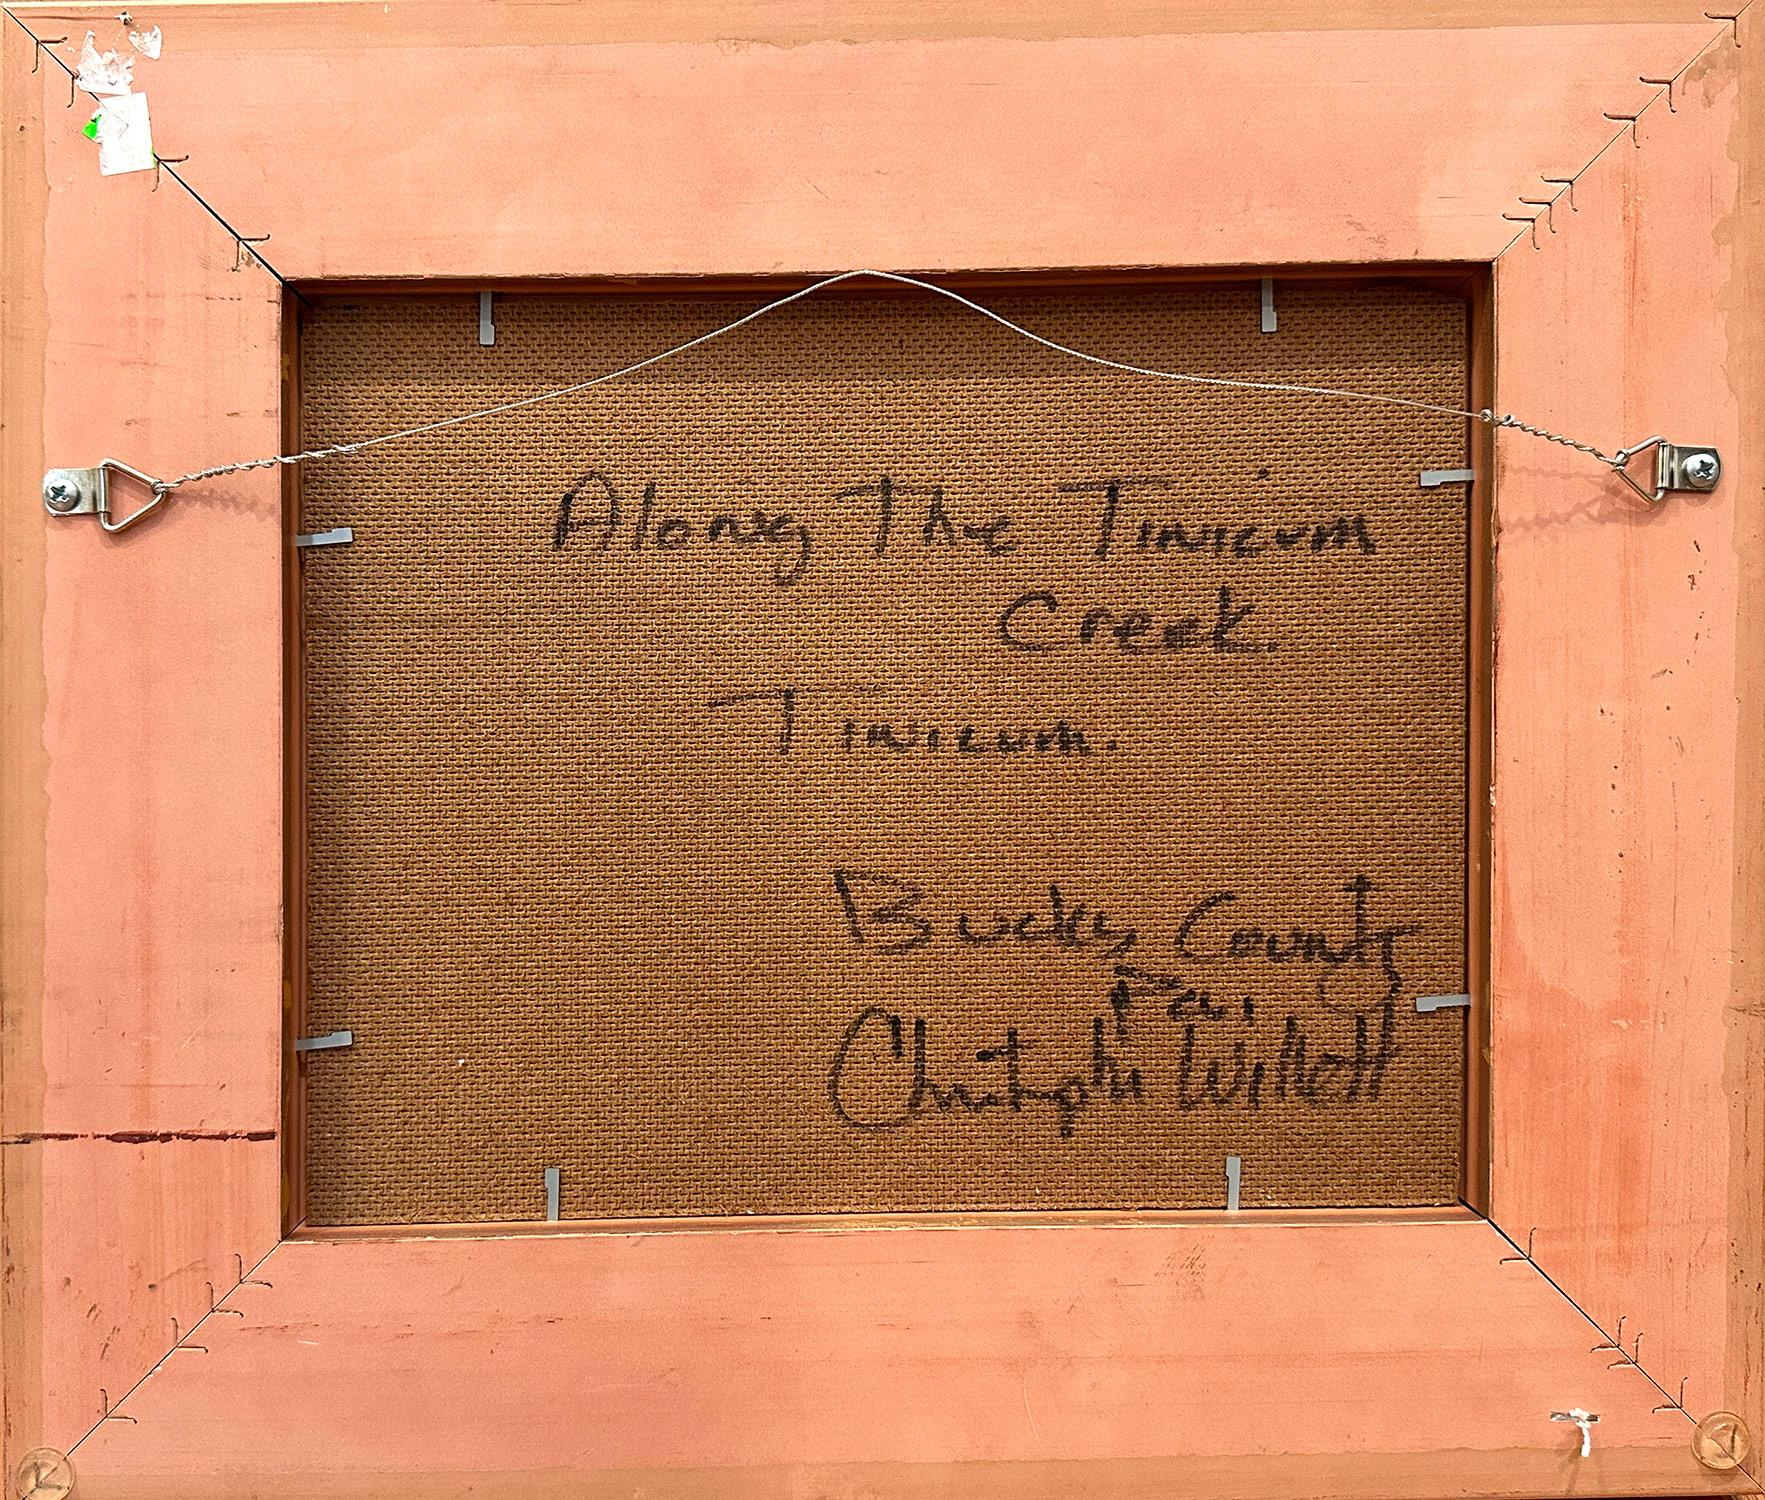 Along The Tinicum
Creek.
Tinicum.
Bucks County
Pa.
Christopher Willett